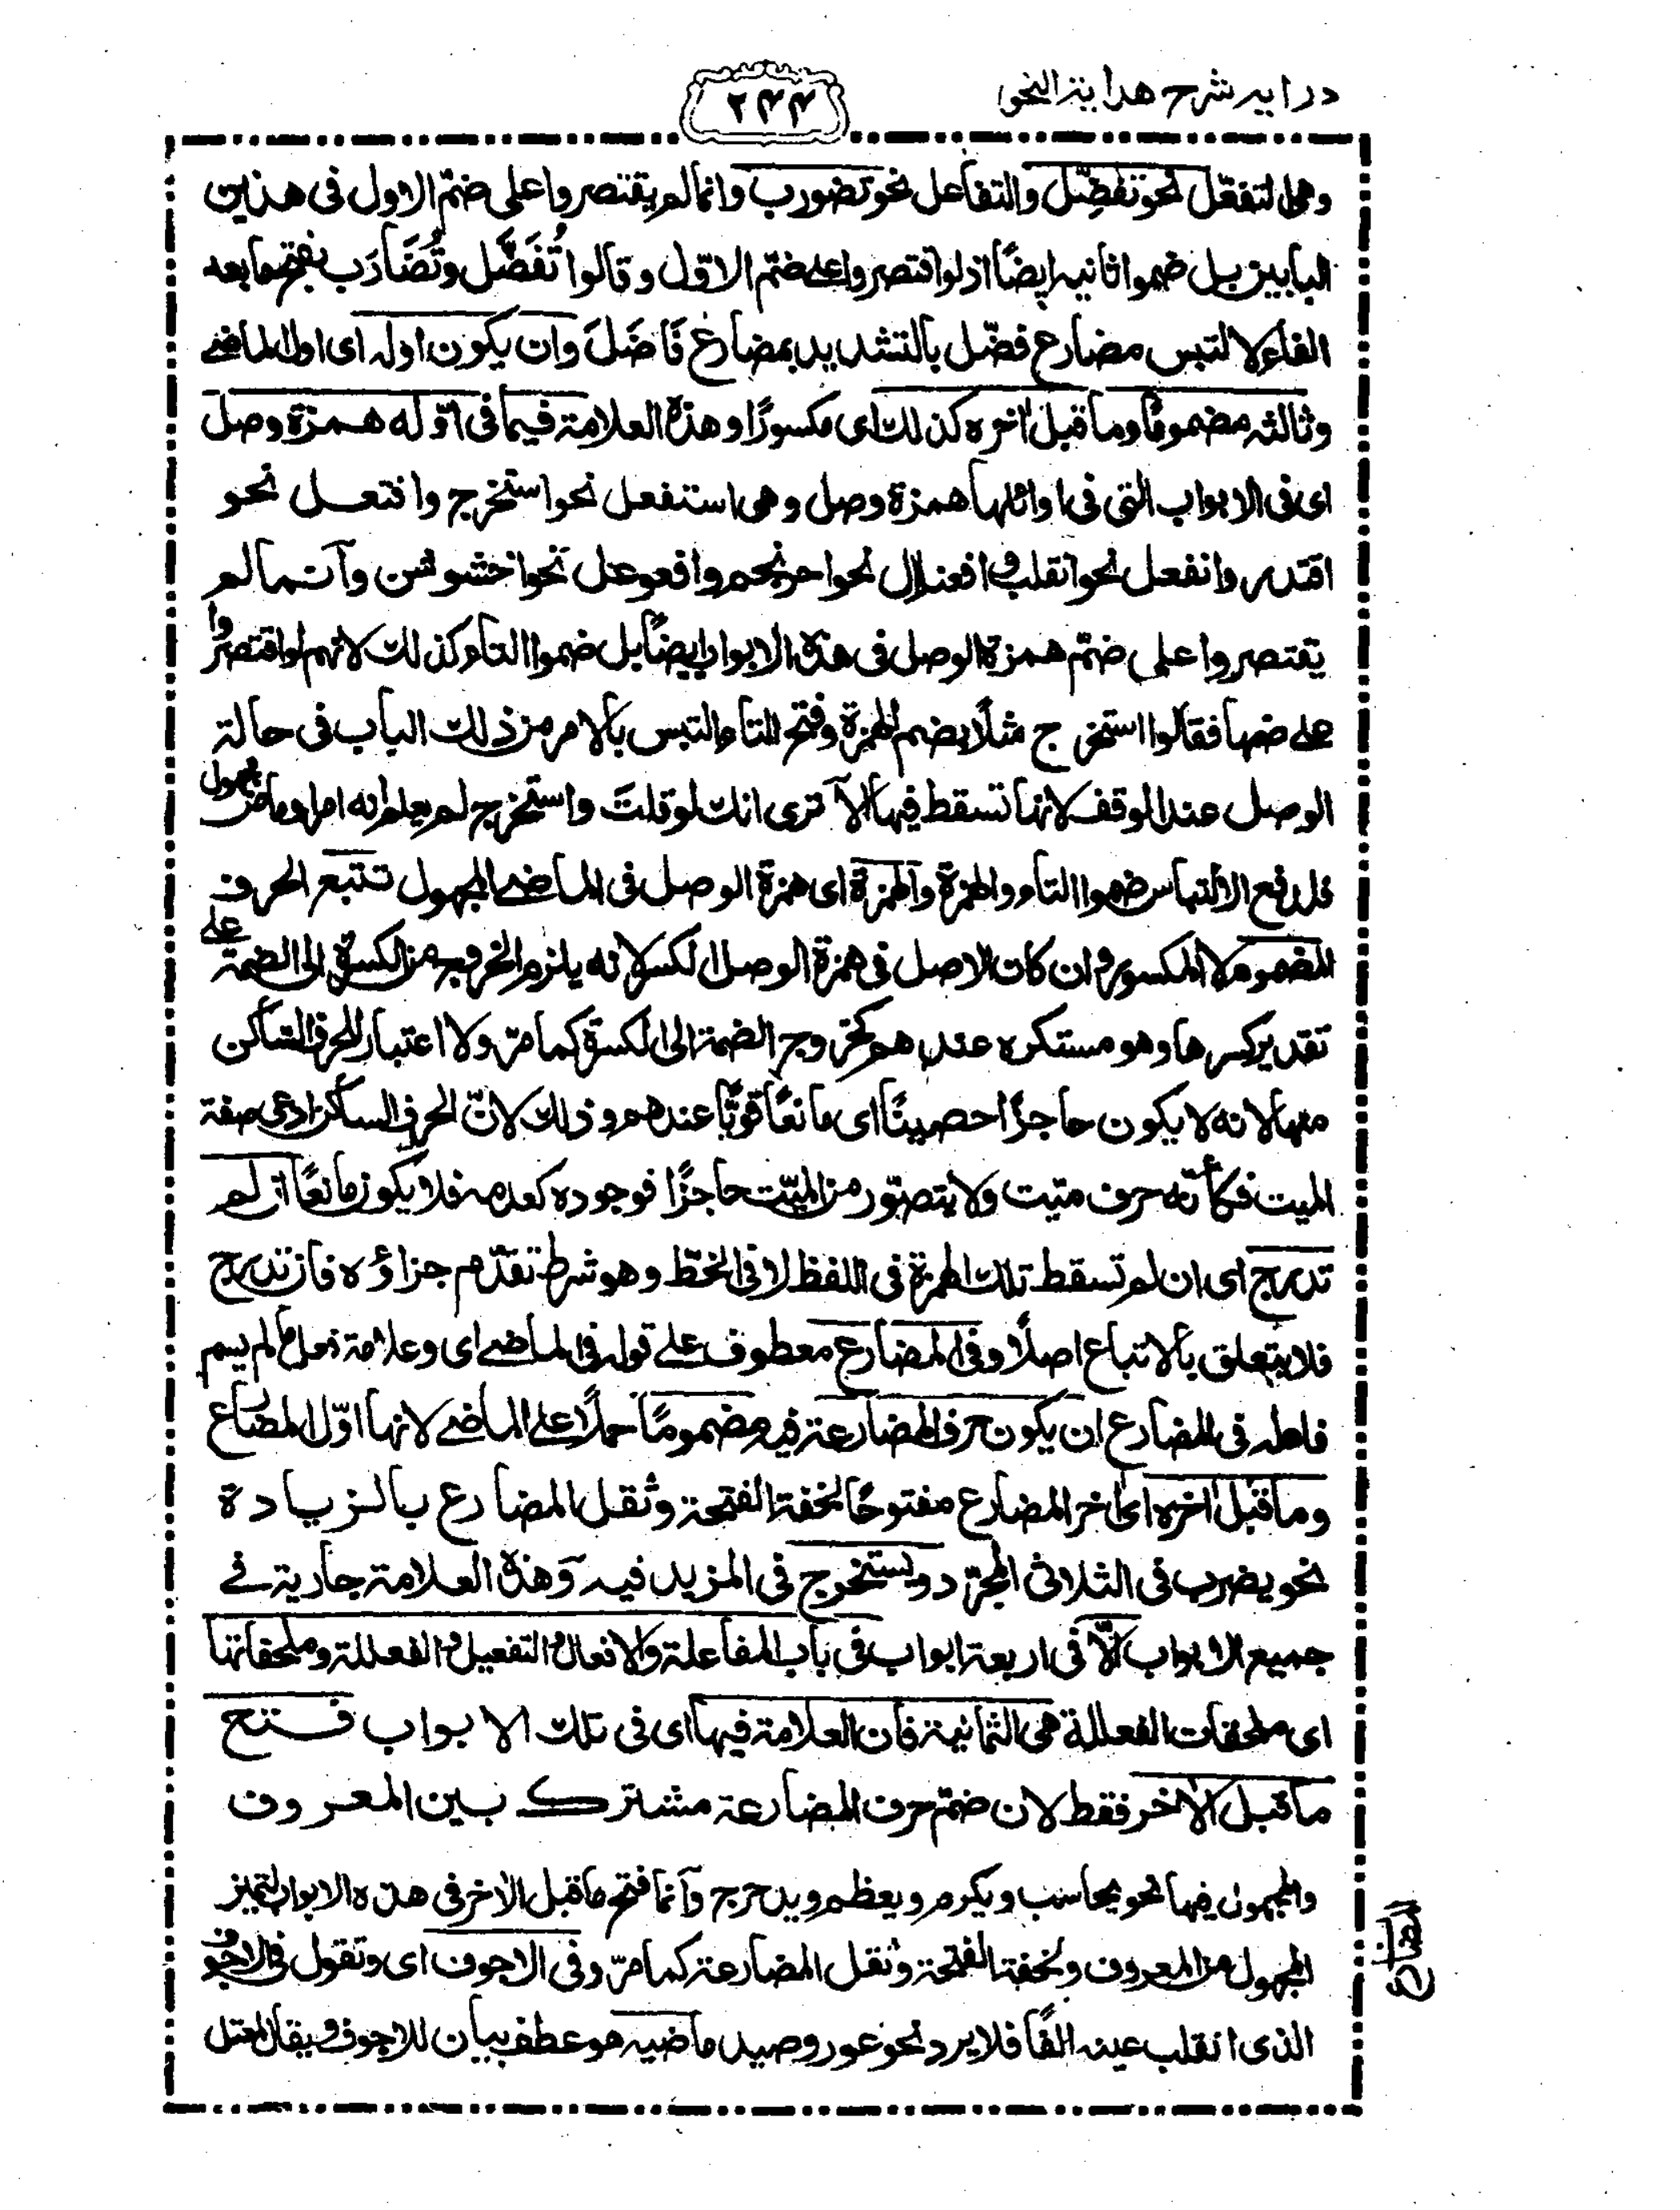 درايه شرح هداية النحو
٢٤٤
وهما التفعّل نحو تفضّل والتفاعل نحو تضورب وانما لم يقتصروا على ضمّ الاول فى هذين
البابين بل ضموا ثانيه ايضًا اذ لو اقتصروا على ضمّ الاوّل و قالوا تُفَضَّل وتُضَارَب بفتح ما بعد
الفاء لالتبس مضارع فضّل بالتشديد بمضارع فَاضَلَ وان يكون اوله اى اول الماضے
وثالثه مضمومًا وما قبل اٰخره كذلك اى مكسورًا وهذه العلامة فيما فى اوّله همزة وصل
اى فى الابواب التى فى اوائلها همزة وصل وهى استفعل نحو استخرج وافتعل نحو
اقتدر وانفعل نحو انقلب وافعنلال نحو احرنجم وافعوعل نحو اخشوشن وانما لم
يقتصروا على ضمّ همزة الوصل فى هذه الابواب ايضًا بل ضموا التاء كذلك لانهم لو اقتصروا
على ضمها فقالوا استخرج مثلًا بضم الهمزة وفتح التاء التبس بالامر من ذلك الباب فى حالة
الوصل عند الوقف لانها تسقط فيها الا ترى انك لو قلتَ واستخرج لم يعلم انه امر او ماض مجهول
فلدفع الالتباس ضموا التاء والهمزة والهمزة اى همزة الوصل فى الماضے المجهول تتبع الحرف
المضموم لا المكسور وان كان الاصل فى همزة الوصل الكسر لانه يلزم الخروج من الكسرة الى الضمة على
تقدير كسرها وهو مستكره عندهم كخروج الضمة الى الكسرة كما مرّ ولا اعتبار للحرف الساكن
منها لانه لا يكون حاجزًا حصينًا اى مانعًا قويًّا عندهم وذلك لانّ الحرف الساكن ادعى صفة
الميت فكأنّه حرف ميّت ولا يتصوّر من الميّت حاجزًا فوجوده كعدمه فلا يكون مانعًا ان لم
تدرج اى ان لم تسقط تلك الهمزة فى اللفظ لا فى الخطّ وهو شرط تقدّم جزاؤه فان تدرج
فلا يتعلق بالاتباع اصلًا وفى المضارع معطوف على قوله فى الماضے اى وعلامة فعل ما لم يسم
فاعله فى المضارع ان يكون حرف المضارعة فيه مضمومًا حملًا على الماضے لانها اوّل المضارع
وما قبل اٰخره اى اٰخر المضارع مفتوحًا لخفة الفتحة وثقل المضارع بالزيادة
نحو يضرب فى الثلاثى المجرّد ويستخرج فى المزيد فيه وهذه العلامة جارية فے
جميع الابواب الّا فى اربعة ابواب فى باب المفاعلة والافعال والتفعيل والفعللة وملحقاتها
اى ملحقات الفعللة هى الثمانية فان العلامة فيها اى فى تلك الابواب فتح
ما قبل الاٰخر فقط لان ضمّ حرف المضارعة مشترك بين المعروف
والمجهول فيها نحو يحاسب ويكرم ويعظم ويدحرج وانما فتح ما قبل الاٰخر فى هذه الابواب لتميز
المجهول من المعروف ولخفة الفتحة وثقل المضارعة كما مرّ وفى الاجوف اى وتقول فى الاجوف
الذى انقلب عينه الفًا فلا يرد نحو عور وصيد ماضيه هو عطف بيان للاجوف ويقال المعتل